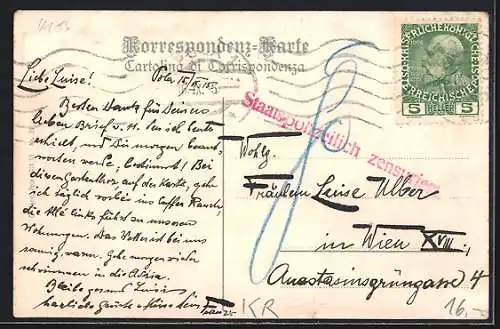 Korrespondenz-Karte
Cartolina di Corrispondenza
Pola 15/VI 15
Liebe Luise!
Besten Dank für Deinen
lieben Brief v. 11. den ich heute
erhielt, und Dir morgen beant-
worten werde. Bestimmt! Bei
diesem Gartenthor, auf der Karte, gehe
ich täglich vorbei ins Caffee
die Allé links führt zu unseren
Wohnungen. Das Wetter ist bei uns
sonnig, warm. Gehe morgen wieder
schwimmen in die Adria.
Bleibe gesund Luise
herzliche Grüsse Küsse Dein
Franz
Staatspolizeilich zensuriert
Wohlg.
Fräulein Luise Ulber
in Wien XVIII.,
Anastasiusgrüngasse 4
5 HELLER 5
KR
16.-